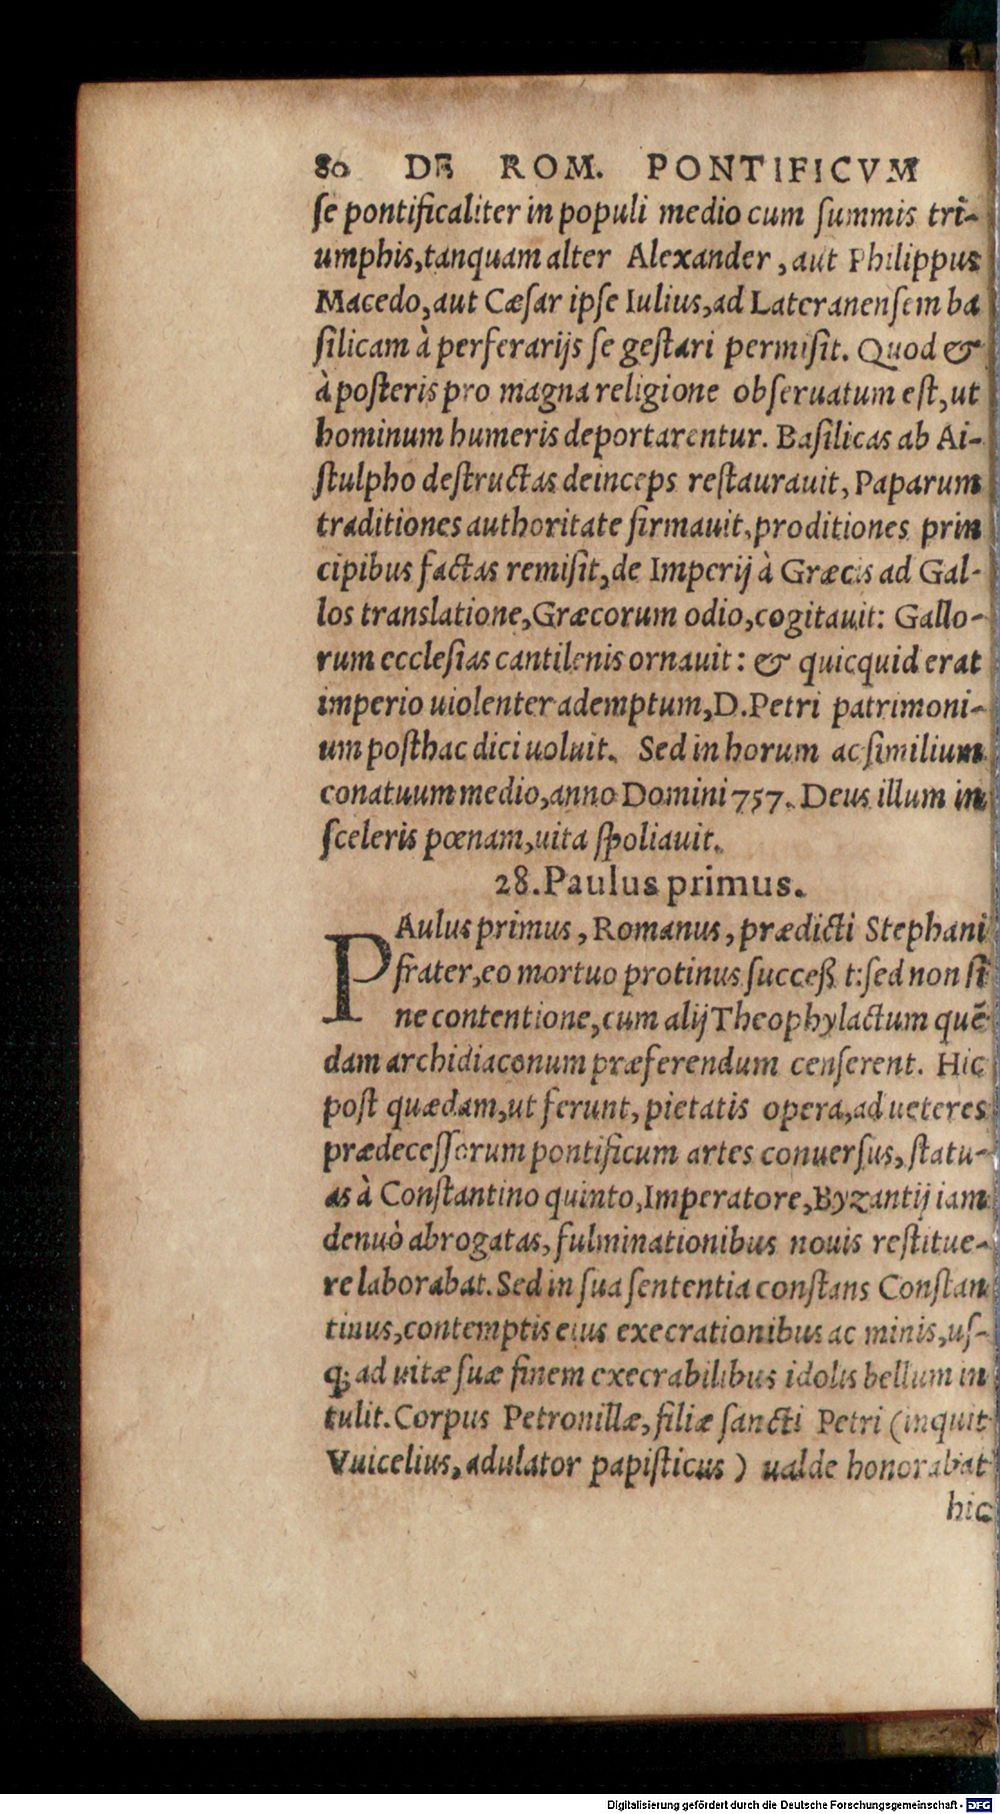 80 DE ROM. PONTIFICVM
ſe pontificaliter in populi medio cum ſummis tri-
umphis, tanquam alter Alexander, aut Philippus
Macedo, aut Cæſar ipſe Iulius, ad Lateranenſem ba
ſilicam à perferarijs ſe geſtari permiſit. Quod &
à poſteris pro magna religione obſeruatum eſt, ut
hominum humeris deportarentur. Baſilicas ab Ai-
ſtulpho deſtructas deinceps reſtaurauit, Paparum
traditiones authoritate firmauit, proditiones prin
cipibus factas remiſit, de Imperij à Græcis ad Gal-
los translatione, Græcorum odio, cogitauit: Gallo-
rum eccleſias cantilenis ornauit: & quicquid erat
imperio uiolenter ademptum, D. Petri patrimoni-
um poſthac dici uoluit. Sed in horum ac ſimilium
conatuum medio, anno Domini 757. Deus illum in
ſceleris pœnam, uita ſpoliauit.
28. Paulus primus.
PAulus primus, Romanus, prædicti Stephani
frater, eo mortuo protinus succeß t: ſed non ſi
ne contentione, cum alij Theophylactum quẽ
dam archidiaconum præferendum cenſerent. Hic
poſt quædam, ut ferunt, pietatis opera, ad ueteres
prædeceſſorum pontificum artes conuerſus, ſtatu-
as à Conſtantino quinto, Imperatore, Byzantij iam
denuò abrogatas, fulminationibus nouis reſtitue-
re laborabat. Sed in ſua ſententia conſtans Conſtan
tinus, contemptis eius execrationibus ac minis, uſ-
q; ad uitæ ſuæ finem execrabilibus idolis bellum in
tulit. Corpus Petronillæ, filiæ ſancti Petri (inquit
Vuicelius, adulator papiſticus) ualde honorabat
hic
Digitalisierung gefördert durch die Deutsche Forschungsgemeinschaft - DFG